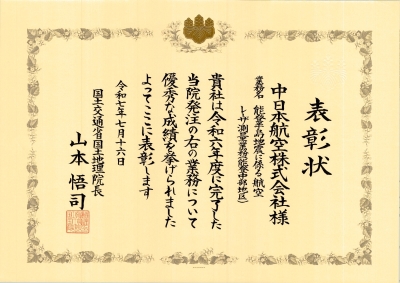 表彰状
中日本航空株式会社様
業務名 能登半島地震に係る航空
レーザ測量業務(能登中部地区)
貴社は令和六年度に完了した
当院発注の右の業務について
優秀な成績を挙げられました
よってここに表彰します
令和七年七月十六日
国土交通省国土地理院長
山本悟司